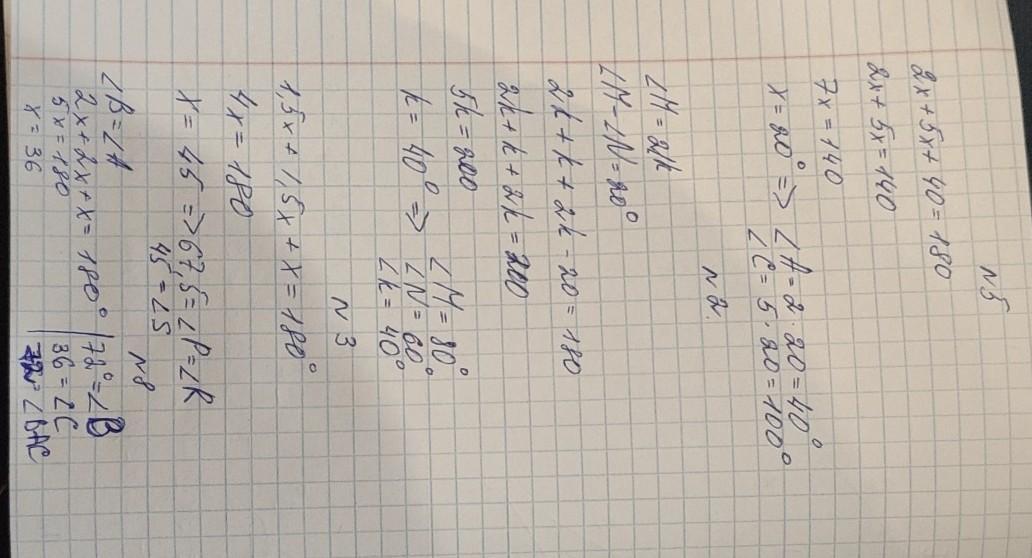 N5
2x + 5x + 40 = 180
2x + 5x = 140
7x = 140
x = 20° => ∠A = 2 · 20 = 40°
∠C = 5 · 20 = 100°
N2.
∠M = 2k
∠M - ∠N = 20°
2k + k + 2k - 20 = 180
2k + k + 2k = 200
5k = 200
k = 40° => ∠M = 80°
∠N = 60°
∠k = 40°
N3
1,5x + 1,5x + x = 180°
4x = 180
x = 45 => 67,5 = ∠P = ∠R
45 = ∠S
N8
∠B = ∠A
2x + 2x + x = 180° | 72° = ∠B
5x = 180 | 36 = ∠C
x = 36 | 72 = ∠BAC